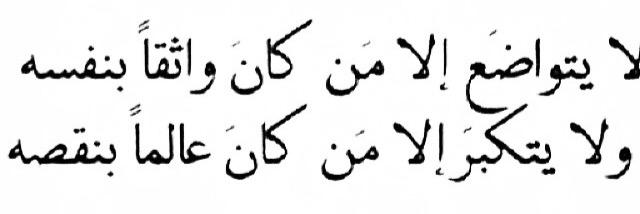 لا يتواضَع إلا مَن كانَ واثقاً بنفسه
ولا يتكبرَ إلا مَن كانَ عالماً بنقصه